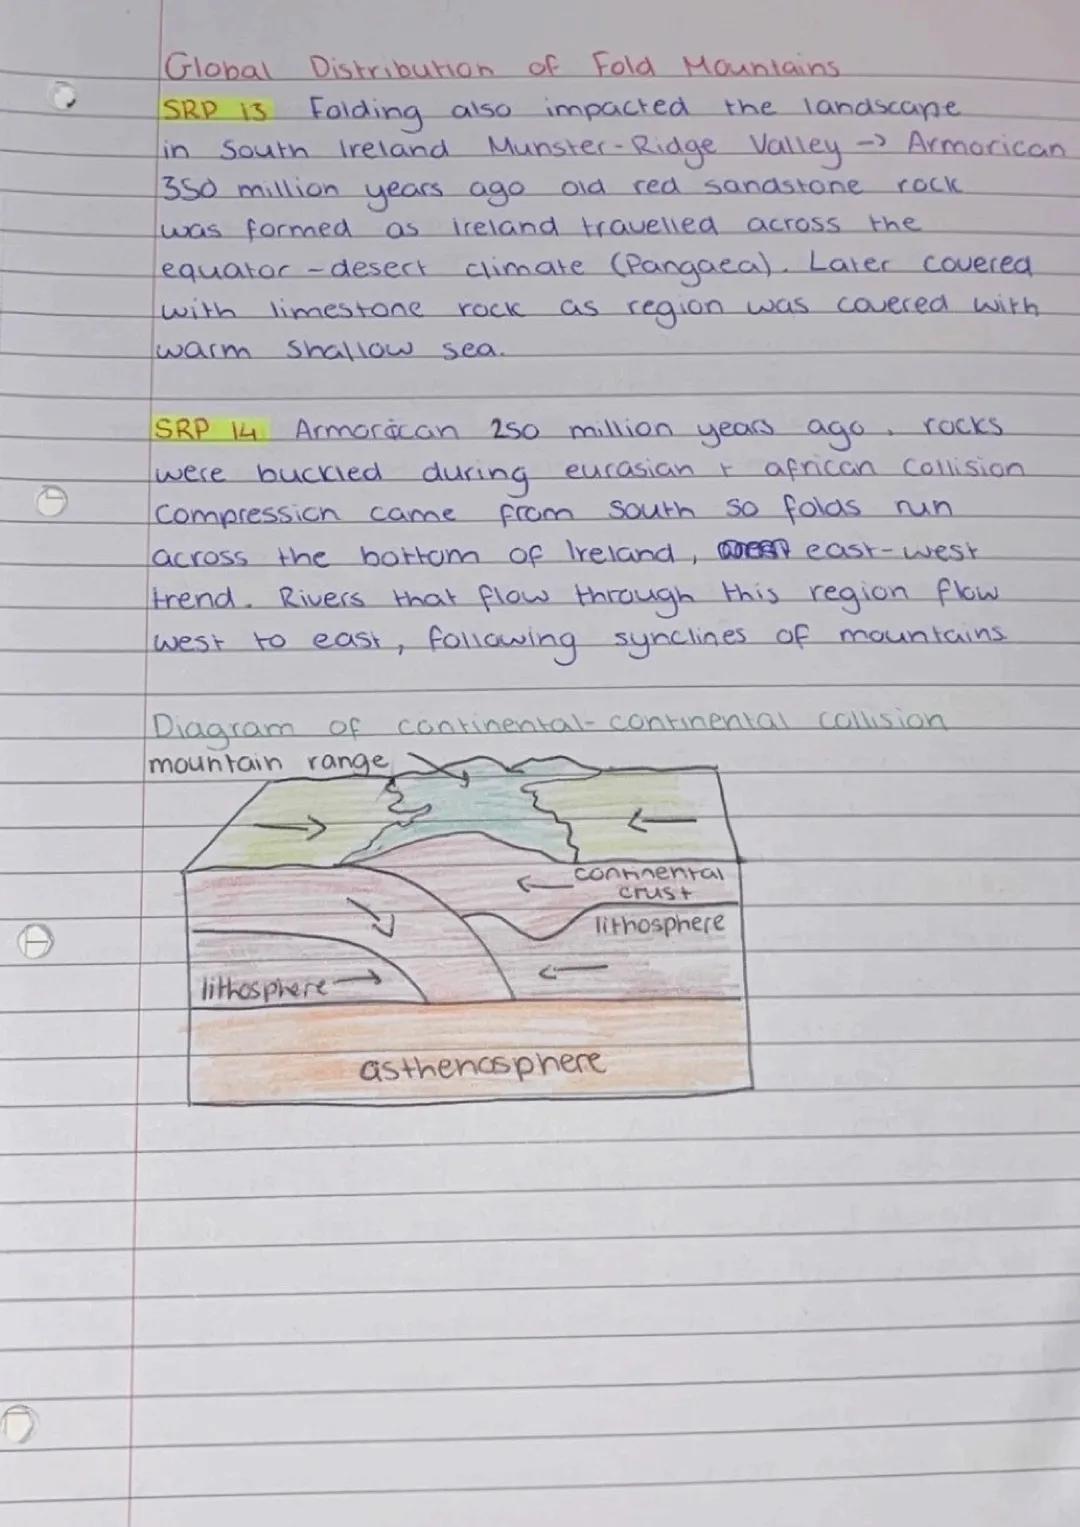 Global Distribution of Fold Mountains
SRP 13 Folding also impacted the landscape
in South Ireland Munster-Ridge Valley → Armorican
350 million years ago old red sandstone rock
was formed as ireland travelled across the
equator - desert climate (Pangaea). Later covered
with limestone rock as region was covered with
warm shallow sea.
SRP 14 Armorican 250 million years ago, rocks
were buckled during eurasian + african collision
Compression came from South so folds run
across the bottom of Ireland, east-west
trend. Rivers that flow through this region flow
west to east, following synclines of mountains
Diagram of continental-continental collision
mountain range
continental
crust
lithosphere
lithosphere
asthenosphere